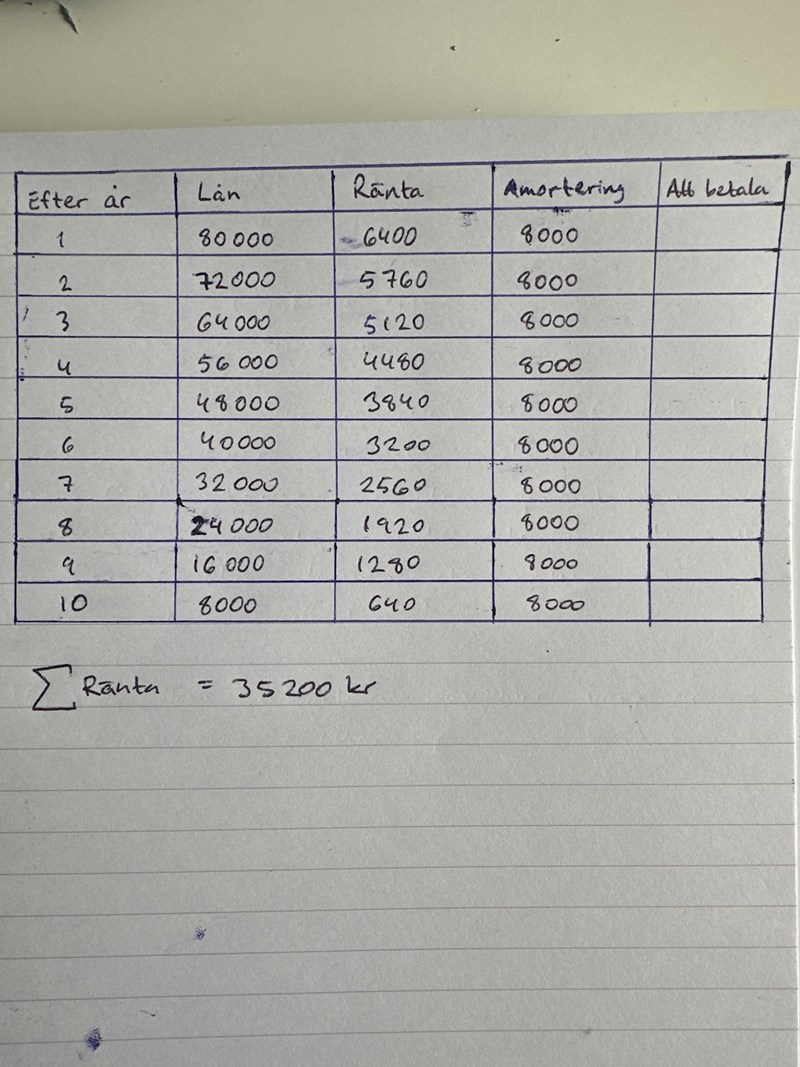 Efter år Lån Ränta Amortering Att betala
1 80 000 6400 8000
2 72000 5760 8000
3 64 000 5120 8000
4 56 000 4480 8000
5 48000 3840 8000
6 40000 3200 8000
7 32 000 2560 8000
8 24 000 1920 8000
9 16 000 1280 8000
10 8000 640 8000
∑ Ränta = 35 200 kr